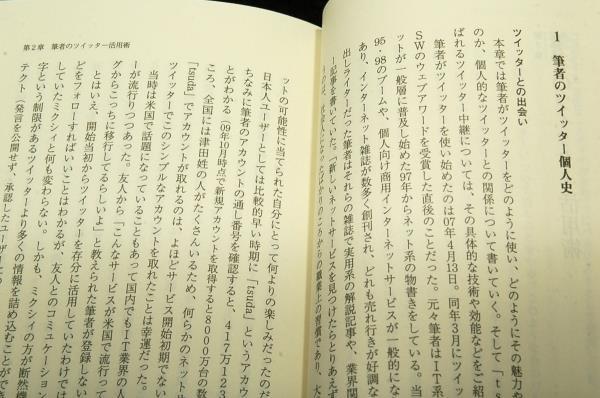 1 筆者のツイッター個人史
ツイッターとの出会い
本章では筆者がツイッターをどのように使い、どのようにその魅力や
のか、個人的なツイッターとの関係について書いていく。そして「ts
ばれるツイッター中継については、その具体的な技術や効能などをご紹
筆者がツイッターを使い始めたのは07年4月13日。同年3月にツイッ
SWのウェブアワードを受賞した直後のことだった。元々筆者はIT系
ットが一般層に普及し始めた97年からネット系の物書きをしている。当
95・98のブームや、個人向け商用インターネットサービスが一般的にな
あり、インターネット雑誌が数多く創刊され、どれも売れ行きが好調な
出しライターだった筆者はそれらの雑誌で実用系の解説記事や、業界関
ー記事を書いていた。「新しいネットサービスを見つけたらとりあえず
ころからの職業上の習慣であり、大
第2章 筆者のツイッター活用術
ットの可能性に当てられた自分にとって何よりの楽しみだったのだ
日本人ユーザーとしては比較的早い時期に「tsuda」というアカウ
ちなみに筆者のアカウントの通し番号を確認すると、417万123
とがわかる（09年10月時点で新規アカウントを取得すると8000万台の数
ころ、全国には津田姓の人がたくさんいるため、何らかのネットサ
「tsuda」でアカウントが取れるのは、よほどサービス開始初期でない
ツイッターでこのシンプルなアカウントを取れたことは幸運だった。
当時は米国で話題になっていることもあって国内でもIT業界の人
ーが流行りつつあった。友人から「こんなサービスが米国で流行って
グからこっちに移行してるらしいよ」と教えられた筆者が登録しない
とはいえ、開始当初からツイッターを存分に活用していたわけでは
をフォローすればいいことはわかるが、友人とのコミュニケーション
していたミクシィと何も変わらない。しかも、ミクシィの方が断然機
字という制限があるツイッターより多くの情報を詰め込むことができ
テクト（発言を公開せず、承認したユーザー